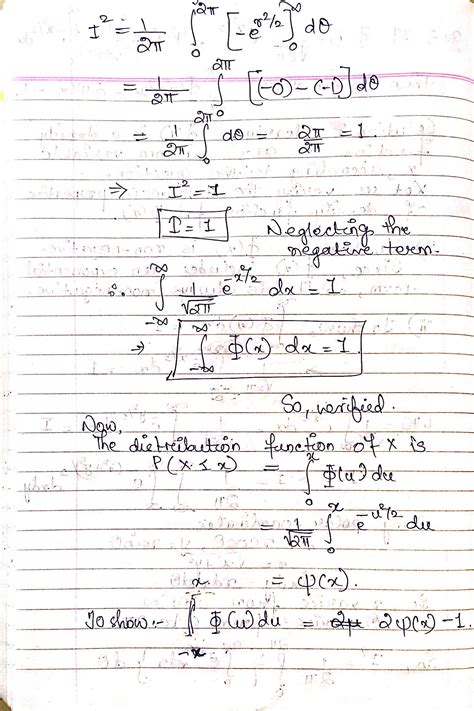 I² = 1/2π ∫₀^2π [-e^r²/2]₀^∞ dθ
= 1/2π ∫₀^2π [(-0) - (-1)] dθ
= 1/2π ∫₀^2π dθ = 2π/2π = 1.
⇒ I² = 1
I = 1 Neglecting the
negative term.
∴ ∫_-∞^∞ 1/√2π e^-x²/2 dx = 1
⇒ ∫_-∞^∞ Φ(x) dx = 1.
So, verified.
Now,
The distribution function of X is
P(X ≤ x) = ∫₀^x Φ(u) du
= 1/√2π ∫₀^x e^-u²/2 du
= φ(x).
To show:- ∫_-x^x Φ(u) du = 2φ(x) - 1.